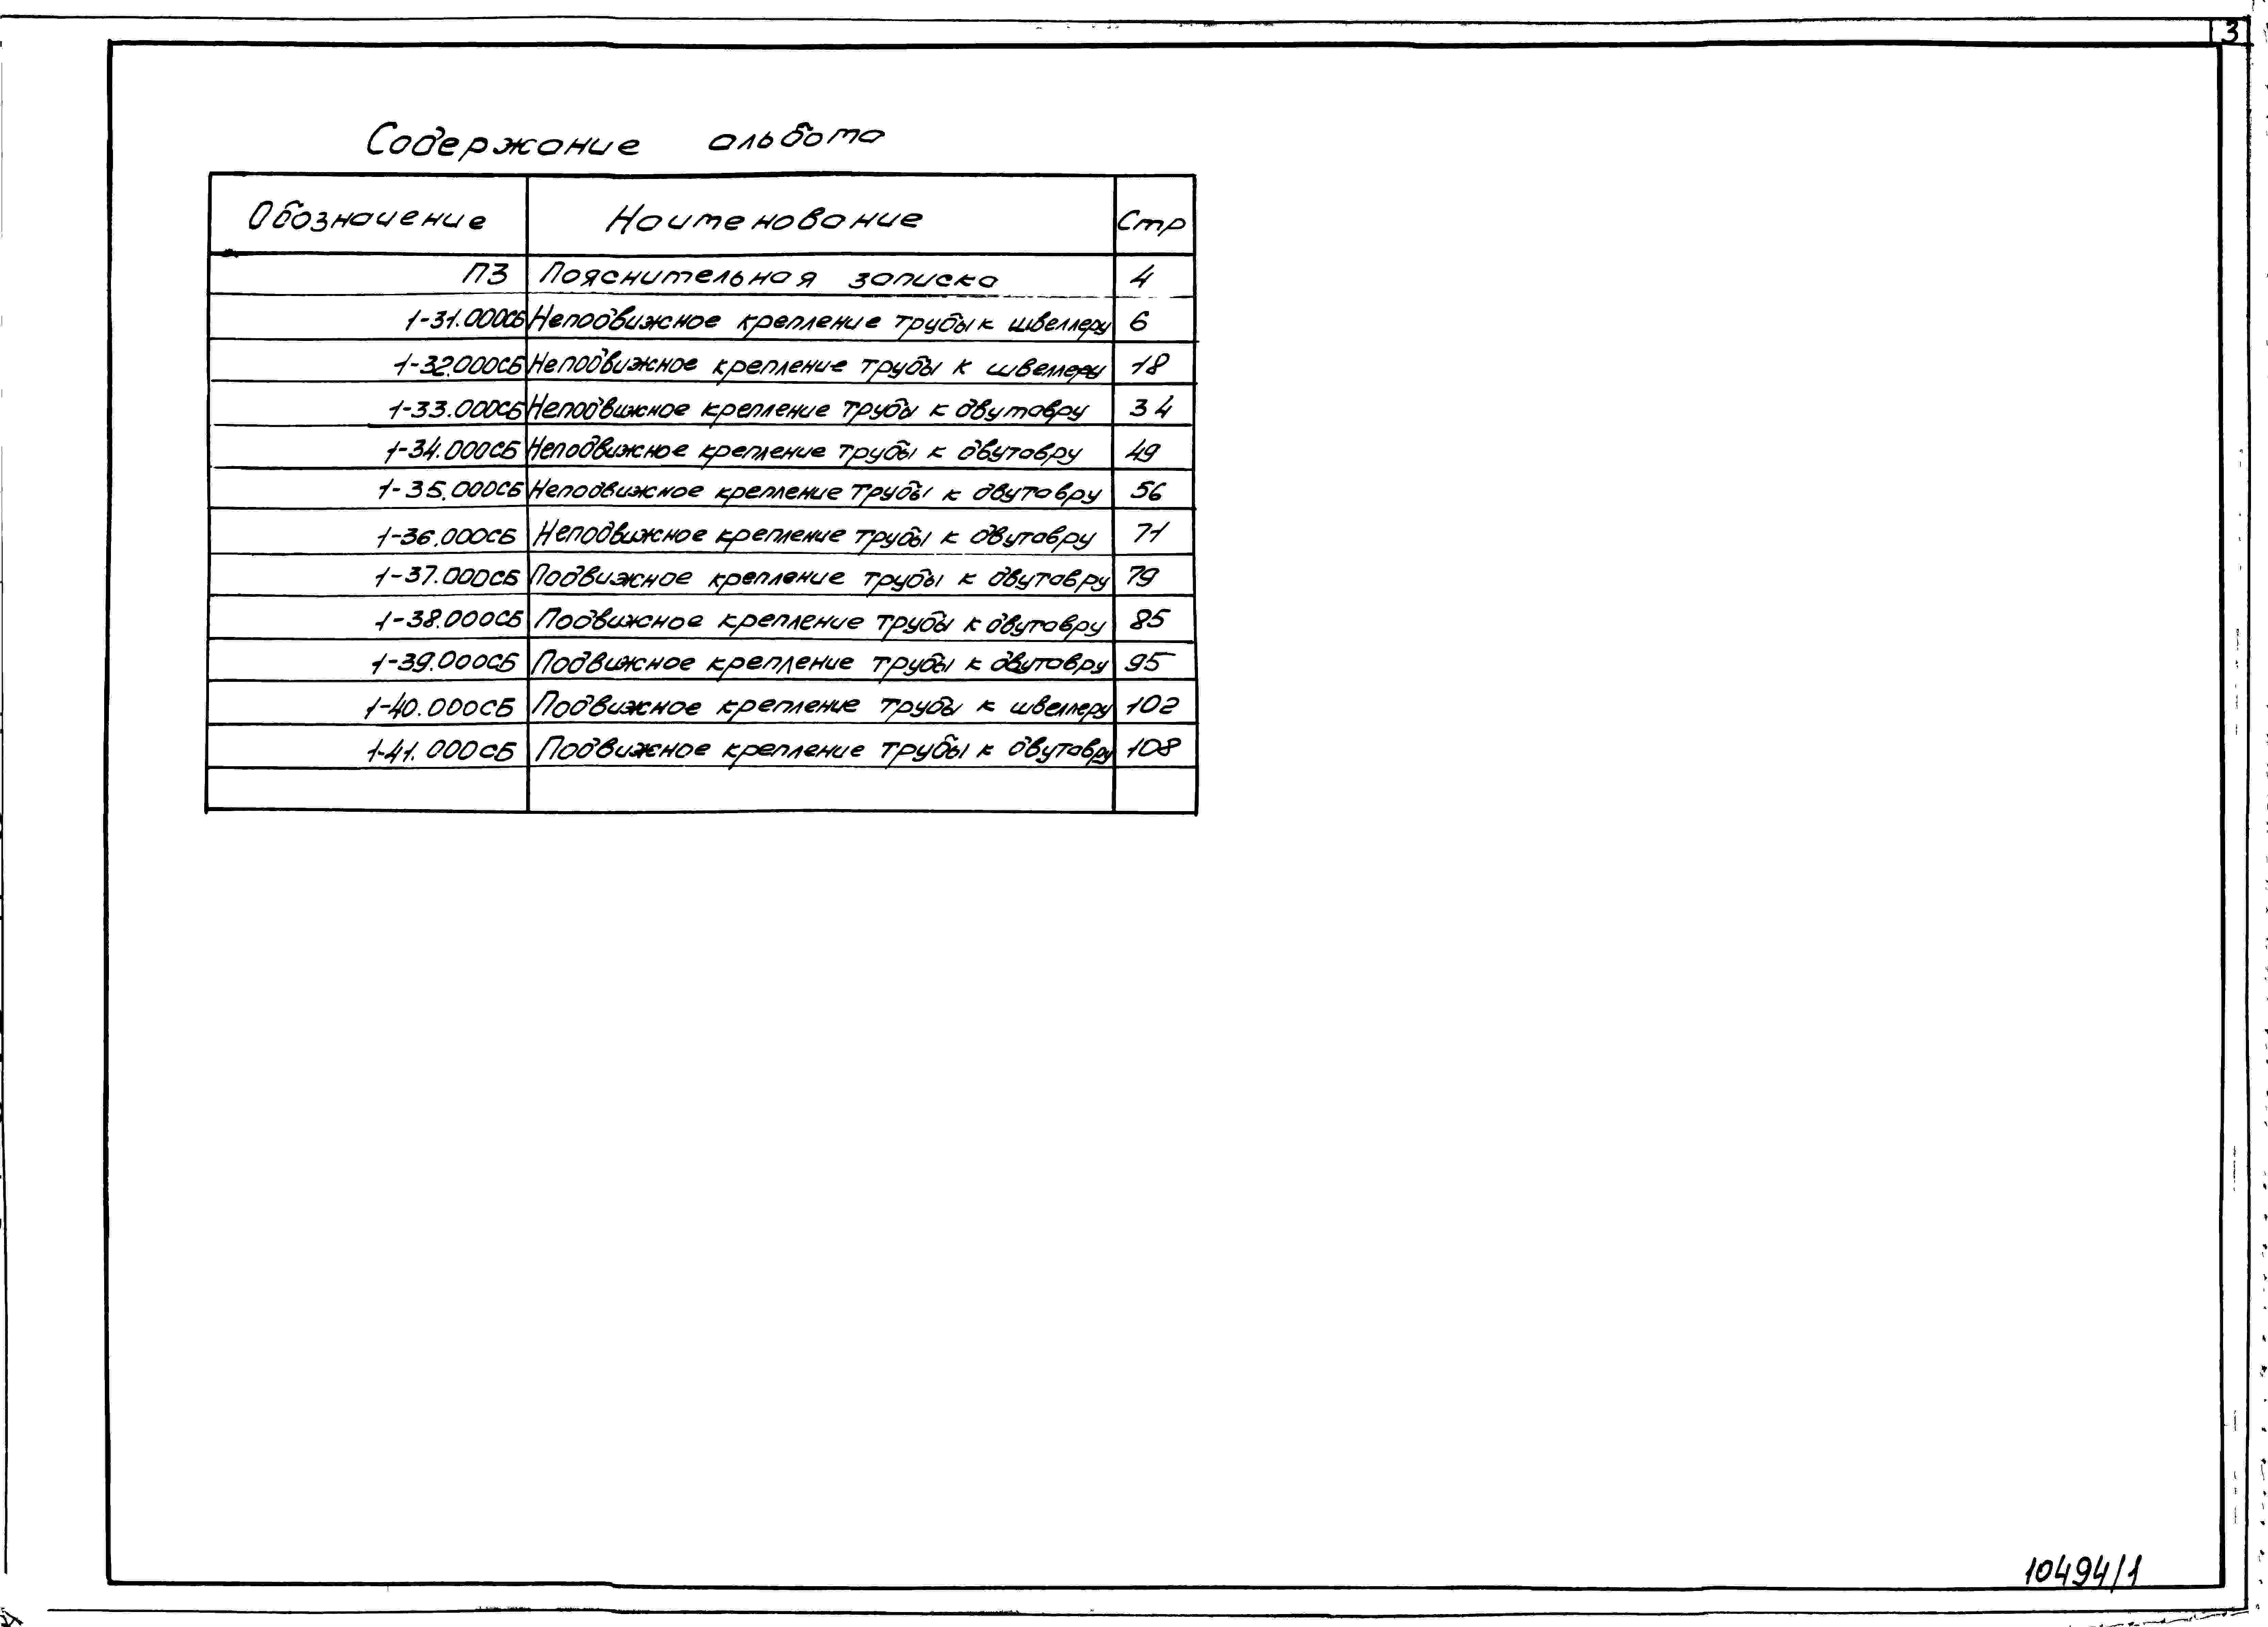 3
Содержание альбома
Обозначение Наименование Стр
ПЗ Пояснительная записка 4
1-31.000СБ Неподвижное крепление трубы к швеллеру 6
1-32.000СБ Неподвижное крепление трубы к швеллеру 18
1-33.000СБ Неподвижное крепление трубы к двутавру 34
1-34.000СБ Неподвижное крепление трубы к двутавру 49
1-35.000СБ Неподвижное крепление трубы к двутавру 56
1-36.000СБ Неподвижное крепление трубы к двутавру 71
1-37.000СБ Подвижное крепление трубы к двутавру 79
1-38.000СБ Подвижное крепление трубы к двутавру 85
1-39.000СБ Подвижное крепление трубы к двутавру 95
1-40.000СБ Подвижное крепление трубы к швеллеру 102
1-41.000СБ Подвижное крепление трубы к двутавру 108
10494/1